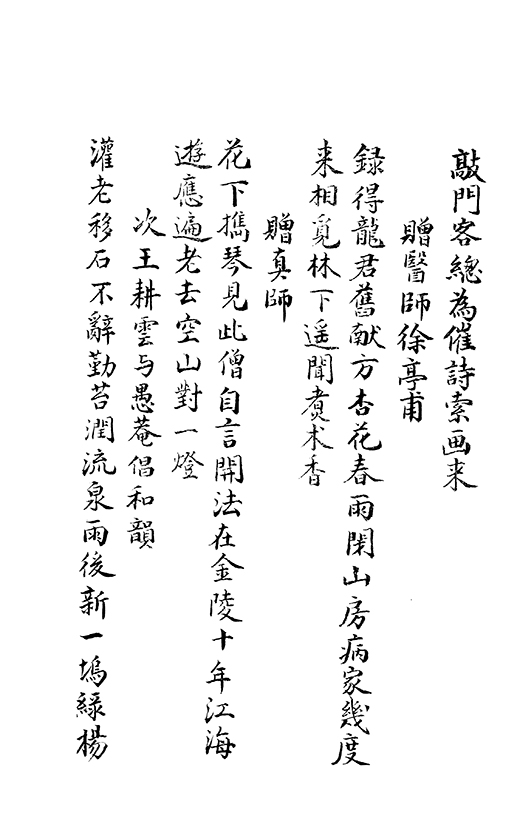 敲門客總為催詩索画来
贈醫師徐亭甫
録得龍君舊献方杏花春雨閑山房病家幾度
来相覓林下遥聞煑术香
贈真師
花下携琴見此僧自言開法在金陵十年江海
遊應遍老去空山對一燈
次王耕雲与愚菴倡和韻
灌老移石不辭勤苔潤流泉雨後新一塢緑楊